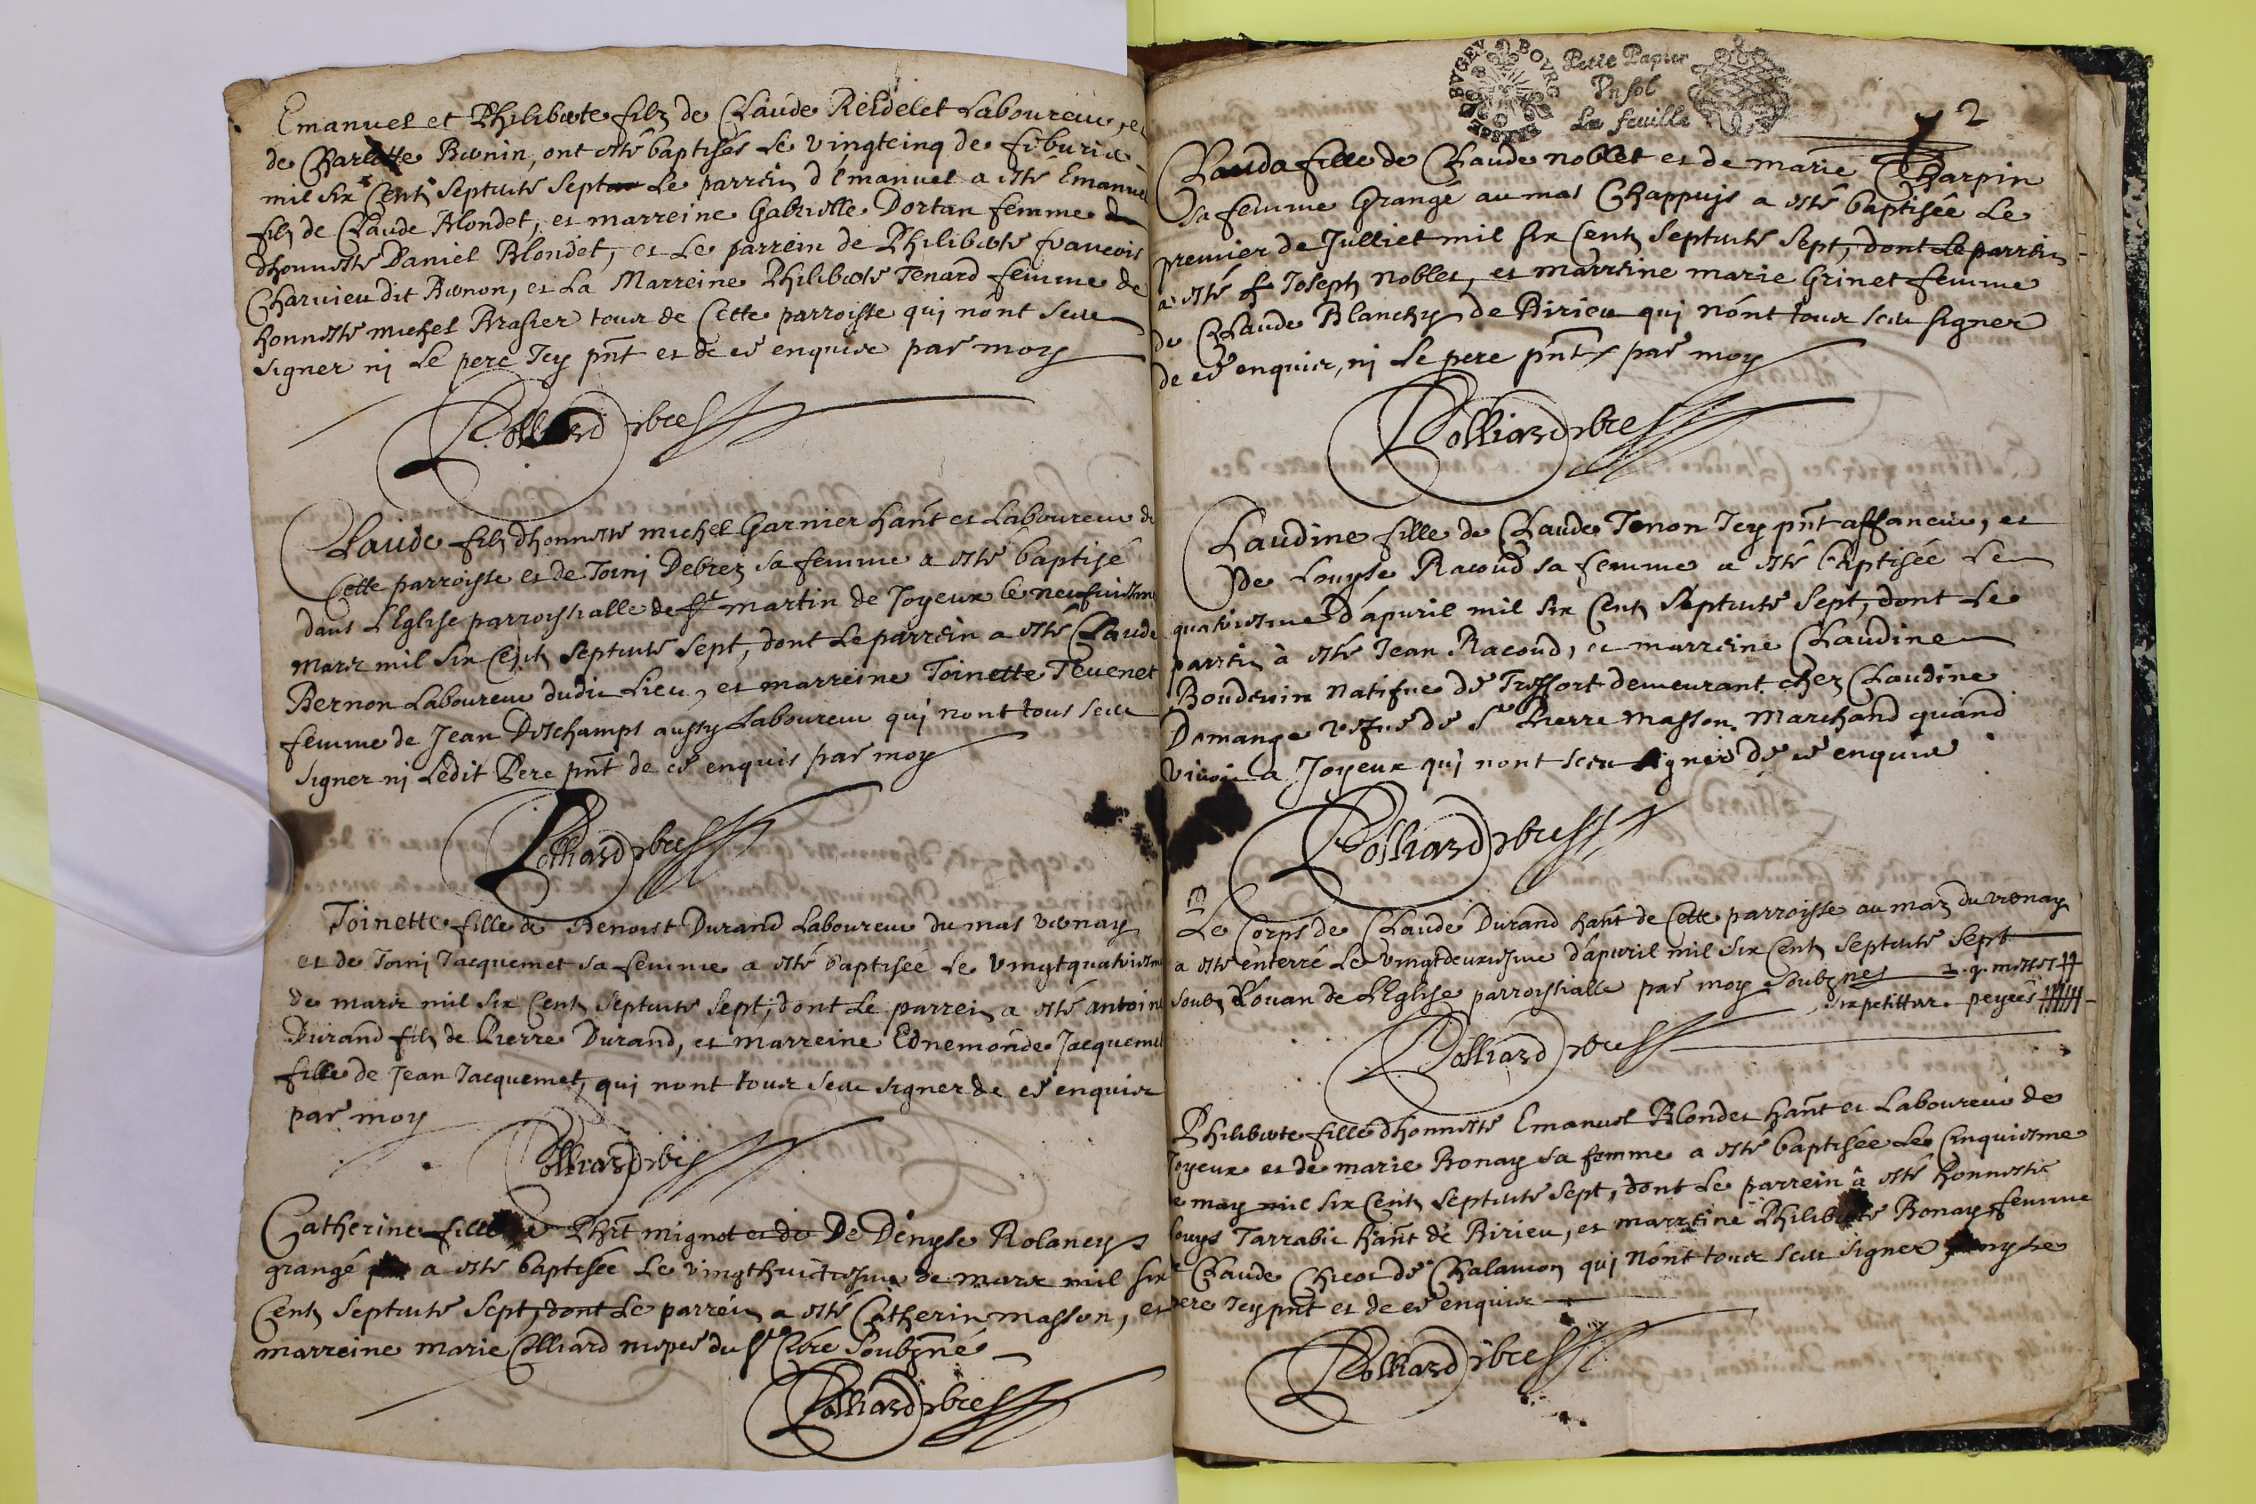 Emanuel et Philiberte filz de Claude Reidelet Laboureur, et
de Charlotte Bernin, ont esté baptisés le vingtcinq de feburier
mil six Centz septante sept Le parrein d'Emanuel a esté Emanuel
filz de Claude Blondet, et marreine Gabrielle Dortan femme de
dhonneste Daniel Blondet, et Le parrein de Philiberte francois
Charuieu dit Bernon, et La Marreine Philiberte Tenard femme de
honneste michel Brasier tour de Cette parroisse qui nónt sceu
signer ni Le pere Icy pñt et de ce enquis par moy
Colliard
Claude filz dhonneste michel Garnier hãnt et Laboureur de
Cette parroisse et de Toini Debrez sa femme a esté baptisé
dans L'Eglise parroissialle de St martin de Joyeux le neufuiesme
Mars mil six Centz septante sept, dont Le parrein a esté Claude
Bernon Laboureur dudit Lieu, et marreine Toinette Teuenet
femme de Jean Deschamps aussy Laboureur qui nont tous sceu
signer ni Ledit Pere pñt de ce enquis par moy
Colliard
Toinette fille de Benoist Durand Laboureur du mas vernay
et de Toini Jacquemet sa femme a esté baptisée Le vingtquatriesme
de mars mil six Centz septante sept, dont Le parrein a esté antoine
Durand filz de Pierre Durand, et marreine Ednemónde Jacquemet
fille de Jean Jacquemet, qui nont tour sceu signer de ce enquis
par moy
Colliard
Catherine fille de Phit mignot et de De Denyse Rolancy
grangé a esté baptisée Le vingthuictiesme de mars mil six
Centz septante sept, dont Le parrein a esté Catherin masson, et
marreine marie Colliard niepce du Sr Curé soubzné
Colliard
BVGEY BOVRG BRESSE
Petit Papier
Vn sol
La feuille
2
Clauda fille de Claude noblet et de marie Charpin
sa femme Grangé au mas Chappuys a esté baptisée Le
premier de Julliet mil six Centz septante sept, dont Le parrein
a esté Joseph noblet, et marreine marie Grinet femme
de Claude Blanchy de Birieu qui nónt tour sceu signer
de ce enquis, ni Le pere pñt par moy
Colliard
Claudine fille de Claude Tenon Icy pñt affaneur, et
De Louyse Racoud sa femme a esté baptisée Le
quatriesme d'apuril mil six Centz septante sept, dont Le
parrein à esté Jean Racoud, et marreine Claudine
Bouderin natifue de Treffort demeurant chez Claudine
Demange vefue de Sr Pierre masson Marchand quand
viuoit a Joyeux qui nont sceu signer de ce enquis
Colliard
Le Corps de Claude Durand hãnt de Cette parroisse au mas du vernay
a esté enterré Le vingtdeuxiesme d'apuril mil six Centz septante sept
soubz L'ouan de L'Eglise parroissialle par moy soubzné
Colliard
Philiberte fille dhonneste Emanuel Blondet hãnt et Laboureur de
Joyeux et de marie Bonay sa femme a esté baptisée Le Cinquiesme
de may mil six Centz septante sept, dont Le parrein a esté honneste
Louys Tarrabie hãnt de Birieu, et marreine Philiberte Bonay femme
de Claude Chicot de Chalamon qui nónt tour sceu signer ny Le
pere Icy pñt et de ce enquis
Colliard